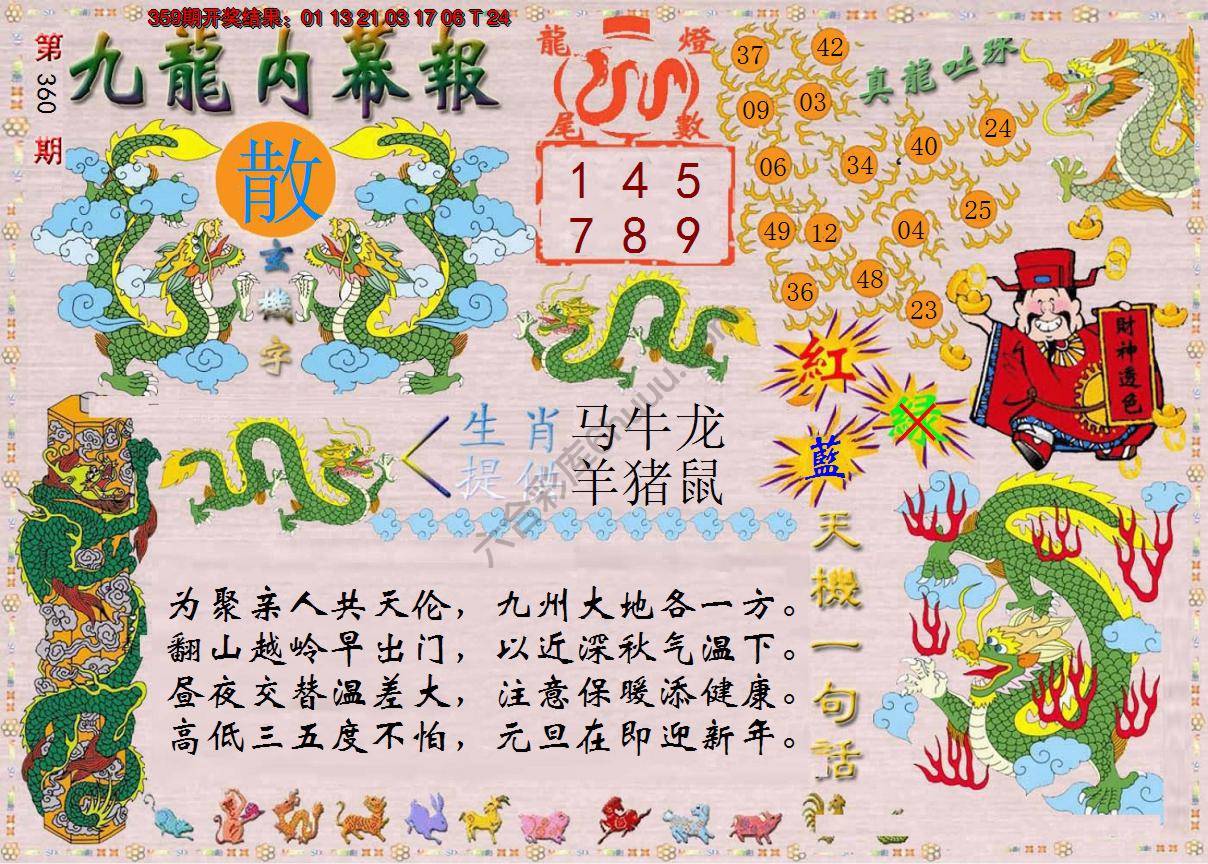 359期开奖结果：01 13 21 03 17 06 T 24
第360期
九龍内幕報
散
玄機字
龍燈尾數
1 4 5
7 8 9
真龍吐珠
37 42
09 03
06 34 40 24
49 12 04 25
36 48 23
紅
綠
藍
財神透色
生肖提供
马牛龙
羊猪鼠
六合彩库
为聚亲人共天伦，九州大地各一方。
翻山越岭早出门，以近深秋气温下。
昼夜交替温差大，注意保暖添健康。
高低三五度不怕，元旦在即迎新年。
天機一句話